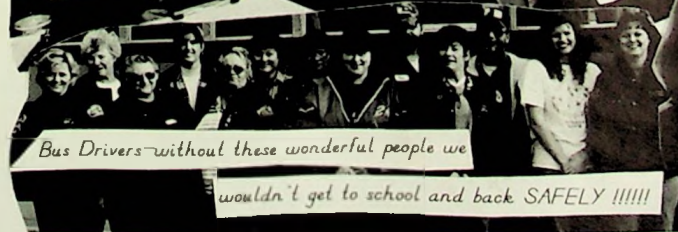 Bus Drivers—without these wonderful people we
wouldn't get to school and back SAFELY !!!!!!